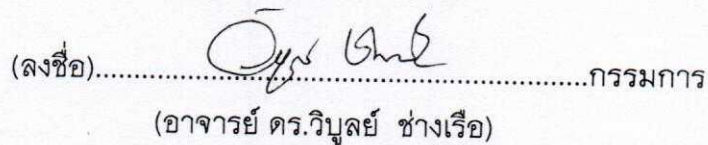 (ลงชื่อ)..........................................................กรรมการ
(อาจารย์ ดร.วิบูลย์ ช่างเรือ)